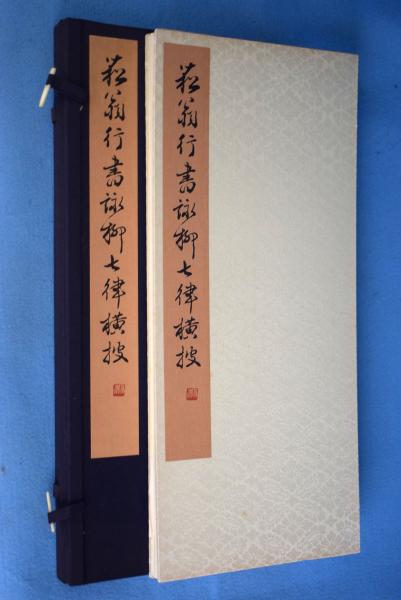 菘翁行書詠柳七律横披
菘翁行書詠柳七律横披